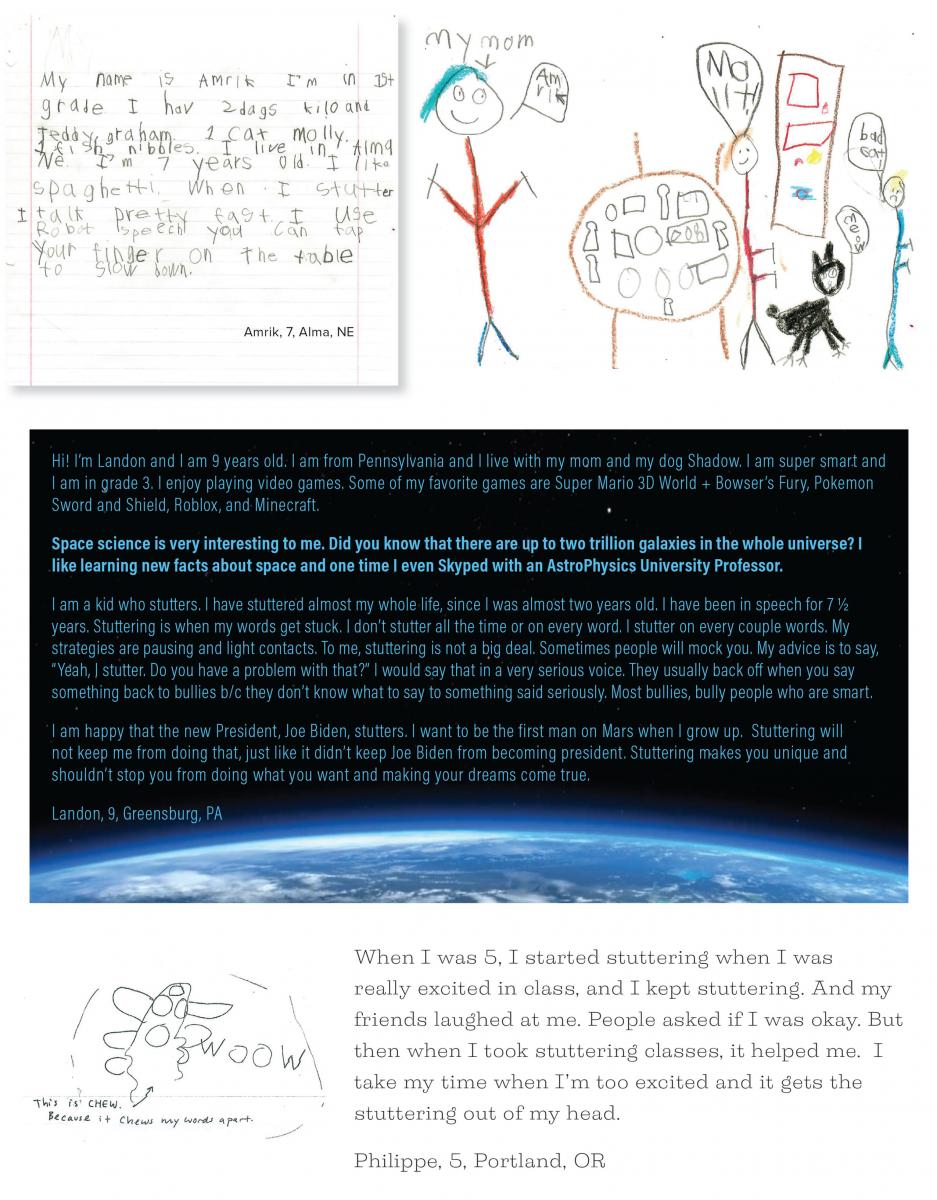 My name is Amrik I'm in 1st
grade I hav 2 dags kilo and
Teddy graham. 1 cat molly.
1 fish nibbles. I live in Alma
Ne. I'm 7 years old. I like
spaghetti. When I stutter
I talk pretty fast. I use
Robot speech you can tap
your finger on the table
to slow down.
Amrik, 7, Alma, NE
My mom
Am
rik
Ma
bad
cat
meow
Hi! I'm Landon and I am 9 years old. I am from Pennsylvania and I live with my mom and my dog Shadow. I am super smart and
I am in grade 3. I enjoy playing video games. Some of my favorite games are Super Mario 3D World + Bowser's Fury, Pokemon
Sword and Shield, Roblox, and Minecraft.
Space science is very interesting to me. Did you know that there are up to two trillion galaxies in the whole universe? I
like learning new facts about space and one time I even Skyped with an AstroPhysics University Professor.
I am a kid who stutters. I have stuttered almost my whole life, since I was almost two years old. I have been in speech for 7 ½
years. Stuttering is when my words get stuck. I don't stutter all the time or on every word. I stutter on every couple words. My
strategies are pausing and light contacts. To me, stuttering is not a big deal. Sometimes people will mock you. My advice is to say,
"Yeah, I stutter. Do you have a problem with that?" I would say that in a very serious voice. They usually back off when you say
something back to bullies b/c they don't know what to say to something said seriously. Most bullies, bully people who are smart.
I am happy that the new President, Joe Biden, stutters. I want to be the first man on Mars when I grow up.  Stuttering will
not keep me from doing that, just like it didn't keep Joe Biden from becoming president. Stuttering makes you unique and
shouldn't stop you from doing what you want and making your dreams come true.
Landon, 9, Greensburg, PA
WOOW
This is CHEW.
Because it chews my words apart.
When I was 5, I started stuttering when I was
really excited in class, and I kept stuttering. And my
friends laughed at me. People asked if I was okay. But
then when I took stuttering classes, it helped me.  I
take my time when I'm too excited and it gets the
stuttering out of my head.
Philippe, 5, Portland, OR